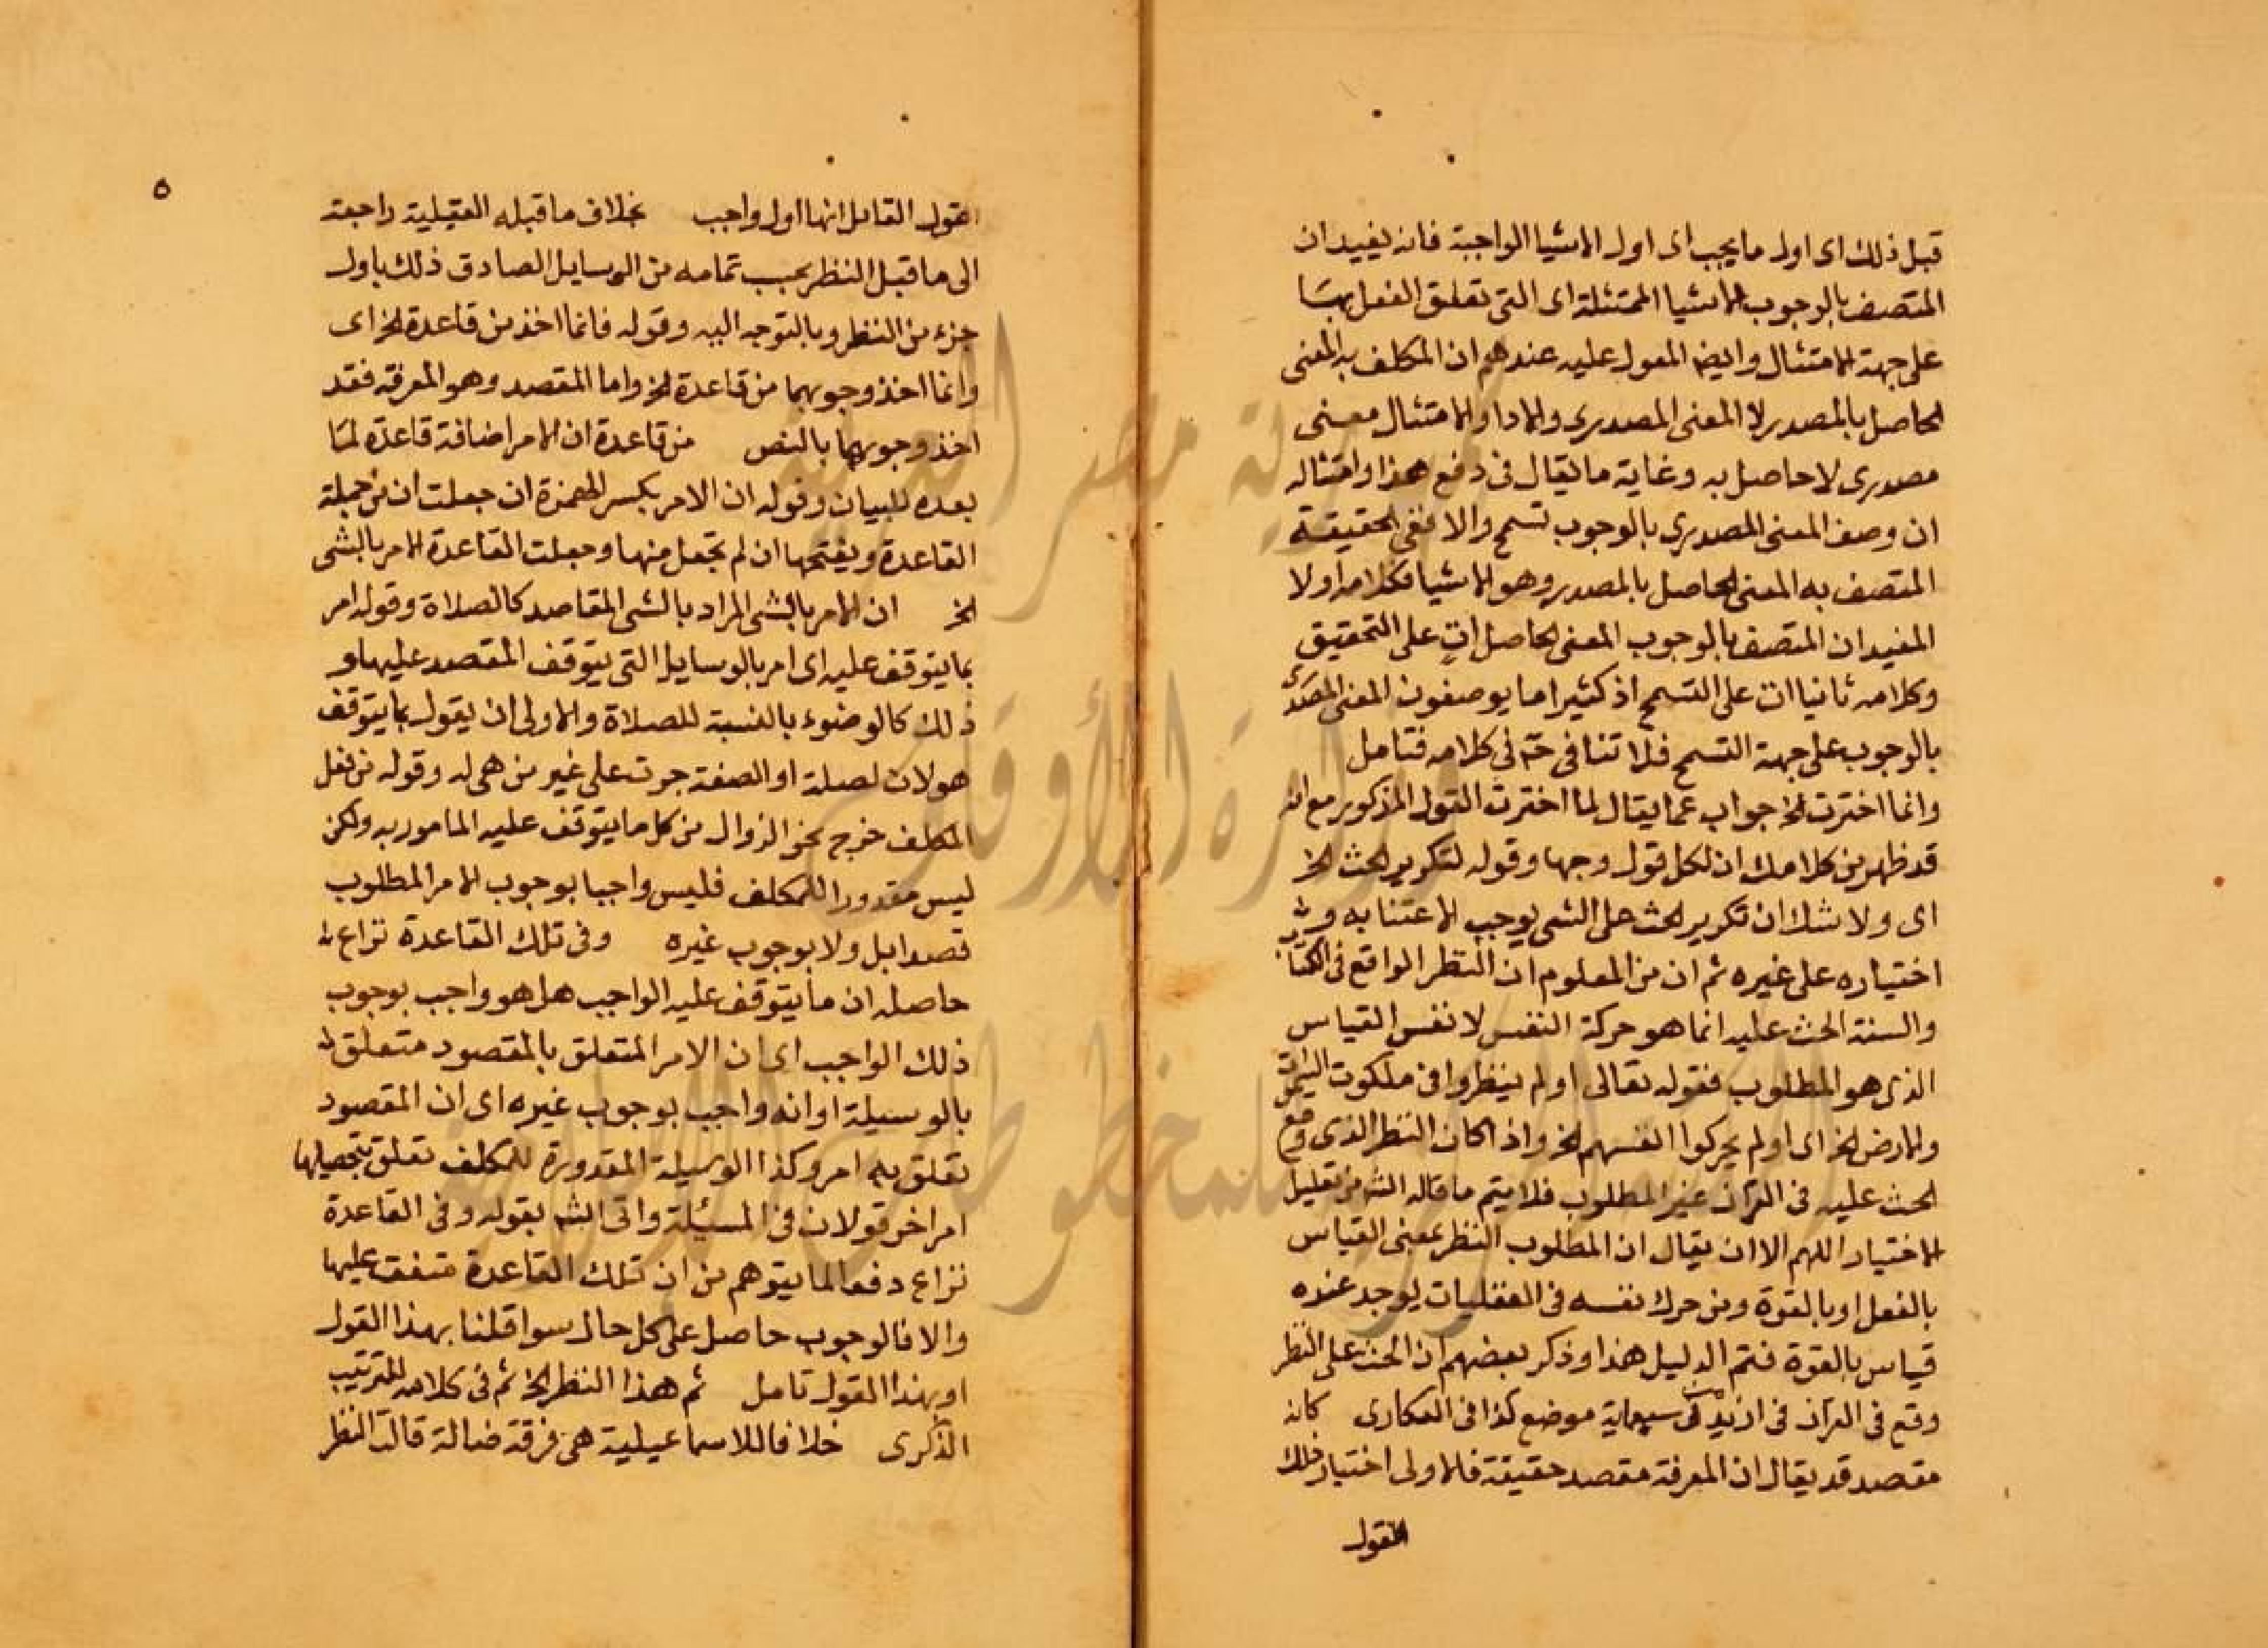 قبل ذلك اى اول ما يجب اى اول الاشيا الواجبة فانه يفيد ان
المتصف بالوجوب الاشيا الممتثلة اى التى تعلق الفعل بها
على جهة الامتثال وايضا المعول عليه عندهم ان المكلف به المعنى
الحاصل بالمصدر لا المعنى المصدرى والادا والامتثال معنى
مصدرى لا حاصل به وغاية ما يقال فى دفع هذا وامثاله
ان وصف المعنى المصدرى بالوجوب تسمح والا ففى الحقيقة
المتصف به المعنى الحاصل بالمصدر وهو الاشيا فكلامه اولا
المفيد ان المتصف بالوجوب المعنى الحاصل ات على التحقيق
وكلامه ثانيا ات على التسمح اذ كثيرا ما يوصفون المعنى المصدرى
بالوجوب على جهة التسمح فلا تنافى ح فى كلامه فتامل
وانما اخترت الخ جواب عما يقال لما اخترت القول المذكور مع انه
قد ظهر من كلامك ان لكل قول وجها وقوله لتكرير الحث الخ
اى ولا شك ان تكرير الحث على الشى يوجب الاعتنا به و
اختياره على غيره ثم ان من المعلوم ان النظر الواقع فى الكتاب
والسنة الحث عليه انما هو حركة النفس لا نفس القياس
الذى هو المطلوب فقوله تعالى اولم ينظروا فى ملكوت السموات
والارض الخ اى اولم يحركوا انفسهم الخ واذا كان النظر الذى وقع
الحث عليه فى القرآن غير المطلوب فلا يتم ما قاله الش من تعليل
الاختيار اللهم الا ان يقال ان المطلوب النظر بمعنى القياس
بالفعل او بالقوة ومن حرك نفسه فى العقليات يوجد عنده
قياس بالقوة فتم الدليل هذا وذكر بعضهم ان الحث على النظر
وقع فى القرآن فى ازيد من سبعماية موضع كذا فى العكارى كانه
مقصد قد يقال ان المعرفة مقصد حقيقة فالاولى اختيار ذلك
القول
القول القايل انها اول واجب بخلاف ما قبله القبلية راجعة
الى ما قبل النظر بحسب تمامه من الوسايل الصادق ذلك باول
جزء من النظر وبالتوجه اليه وقوله فانما اخذ من قاعدة الخ اى
وانما اخذ وجوبهما من قاعدة الخ واما المقصد وهو المعرفة فقد
اخذ وجوبها بالنص من قاعدة ان الامر اضافة قاعدة لما
بعده للبيان وقوله ان الامر بكسر الهمزة ان جعلت ان من جملة
القاعدة وبفتحها ان لم تجعل منها وجعلت القاعدة الامر بالشى
الخ ان الامر بالشى المراد بالشى المقاصد كالصلاة وقوله امر
بما يتوقف عليه اى امر بالوسايل التى يتوقف المقصد عليها و
ذلك كالوضوء بالنسبة للصلاة والاولى ان يقول بما يتوقف
هو لان الصلة او الصفة جرت على غير من هى له وقوله من فعل
المكلف خرج نحو الزوال من كل ما يتوقف عليه المامور به ولكن
ليس مقدورا للمكلف فليس واجبا بوجوب الامر المطلوب
قصدا بل ولا بوجوب غيره وفى تلك القاعدة نزاع
حاصله ان ما يتوقف عليه الواجب هل هو واجب بوجوب
ذلك الواجب اى ان الامر المتعلق بالمقصود متعلق
بالوسيلة او انه واجب بوجوب غيره اى ان المقصود
تعلق به امر وكذا الوسيلة المقدورة للمكلف تعلق بتحصيلها
امر اخر قولان فى المسئلة واتى الش بقوله وفى القاعدة
نزاع دفعا لما يتوهم من ان تلك القاعدة متفق عليها
والا فالوجوب حاصل على كل حال سوا قلنا بهذا القول
او بهذا القول تامل ثم هذا النظر الخ ثم فى كلامه للترتيب
الذكرى خلافا للاسماعيلية هى فرقة ضالة قالت النظر
٥